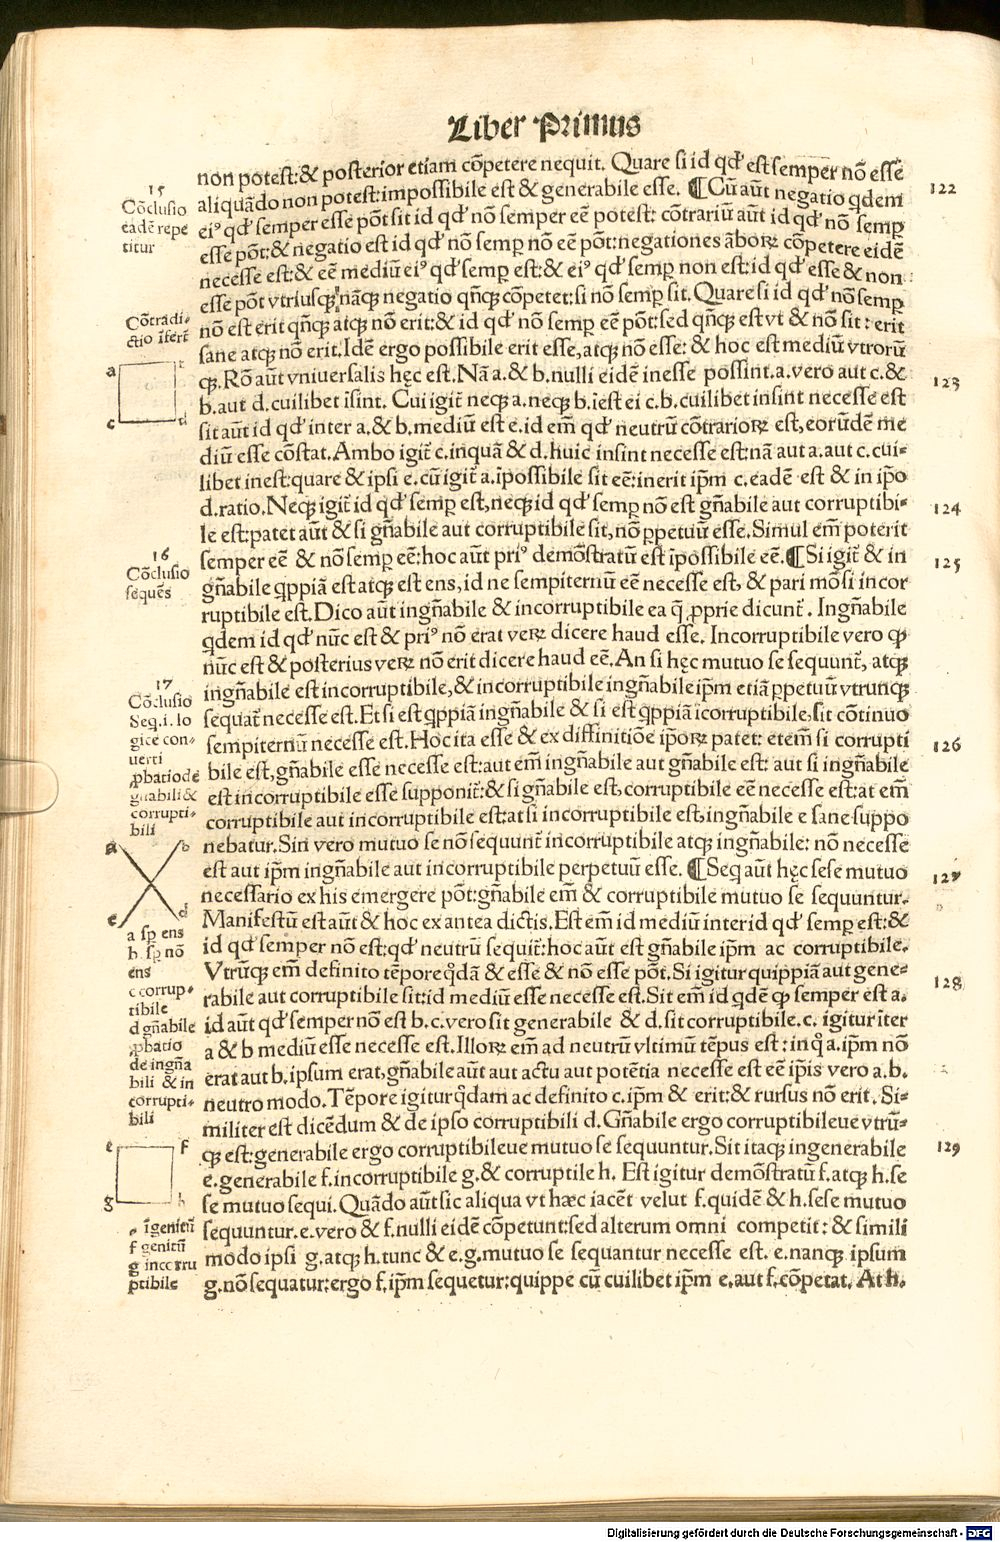 Liber Primus
non potest:& posterior etiam cōpetere nequit. Quare si id qd' est semper nō esse
aliquādo non potest:impossibile est & generabile esse. ¶Cū aūt negatio qdem
eiꝰ qd' semper esse pōt sit id qd' nō semper eē potest: cōtrariū aūt id qd' nō semp
esse pōt:& negatio est id qd' nō semp nō eē pōt:negationes āboꝝ cōpetere eidē
necesse est:& eē mediū eiꝰ qd' semp est:& eiꝰ qd' semp non est:id qd' esse & non
esse pōt vtriusqꝫ nāqꝫ negatio qñqꝫ cōpetet:si nō semp sit. Quare si id qd' nō semp
nō est erit qñqꝫ atqꝫ nō erit:& id qd' nō semp eē pōt:sed qñqꝫ est vt & nō sit : erit
sane atqꝫ nō erit. Idē ergo possibile erit esse, atqꝫ nō esse: & hoc est mediū vtrorū
qꝫ. Rō aūt vniuersalis hęc est. Nā a. & b. nulli eidē inesse possint. a. vero aut c. &
b. aut d. cuilibet īsint. Cui igit̄ neqꝫ a. neqꝫ b. īest ei c. b. cuilibet insint necesse est
sit aūt id qd' inter a. & b. mediū est e. id em̄ qd' neutrū cōtrarioꝝ est, eorūdē me
diū esse cōstat. Ambo igit̄ c. inquā & d. huic insint necesse est:nā aut a. aut c. cui-
libet inest:quare & ipsi e. cū igit̄ a. īpossibile sit eē:inerit ip̄m c. eadē est & in ip̄o
d. ratio. Neqꝫ igit̄ id qd' semp est, neqꝫ id qd' semp nō est gñabile aut corruptibi-
le est:patet aūt & si gñabile aut corruptibile sit, nō ꝑpetuū esse. Simul em̄ poterit
semper eē & nō semp eē:hoc aūt priꝰ demōstratū est īpossibile eē. ¶Si igit̄ & in
gñabile qppiā est atqꝫ est ens, id ne sempiternū eē necesse est, & pari mō si incor
ruptibile est. Dico aūt ingñabile & incorruptibile ea q̄ ꝓprie dicunt̄. Ingñabile
qdem id qd' nūc est & priꝰ nō erat veꝝ dicere haud esse. Incorruptibile vero ꝙ
nūc est & posterius veꝝ nō erit dicere haud eē. An si hęc mutuo se sequunt̄, atqꝫ
ingñabile est incorruptibile, & incorruptibile ingñabile ip̄m etiā ꝑpetuū vtrunqꝫ
sequat̄ necesse est. Et si est qppiā ingñabile & si est qppiā īcorruptibile, sit cōtinuo
sempiternū necesse est. Hoc ita esse & ex diffinitiōe ip̄oꝝ patet: etem̄ si corrupti
bile est, gñabile esse necesse est:aut em̄ ingñabile aut gñabile est: aut si ingñabile
est incorruptibile esse supponit̄:& si gñabile est, corruptibile eē necesse est:at em̄
corruptibile aut incorruptibile est:at si incorruptibile est, ingñabile e sane suppo
nebatur. Sin vero mutuo se nō sequunt̄ incorruptibile atqꝫ ingñabile: nō necesse
est aut ip̄m ingñabile aut incorruptibile perpetuū esse. ¶Seq aūt hęc sese mutuo
necessario ex his emergere pōt:gñabile em̄ & corruptibile mutuo se sequuntur.
Manifestū est aūt & hoc ex antea dictis. Est em̄ id mediū inter id qd' semp est:&
id qd' semper nō est:qd' neutrū sequit̄:hoc aūt est gñabile ip̄m ac corruptibile.
Vtrūqꝫ em̄ definito tēpore qdā & esse & nō esse pōt. Si igitur quippiā aut gene-
rabile aut corruptibile sit:id mediū esse necesse est. Sit em̄ id qdē ꝙ semper est a.
id aūt qd' semper nō est b. c. vero sit generabile & d. sit corruptibile. c. igitur īter
a & b mediū esse necesse est. Illoꝝ em̄ ad neutrū vltimū tēpus est : in q̄ a. ip̄m nō
erat aut b. ipsum erat, gñabile aūt aut actu aut potētia necesse est eē ip̄is vero a. b.
neutro modo. Tēpore igitur qdam ac definito c. ip̄m & erit:& rursus nō erit. Si-
militer est dicēdum & de ipso corruptibili d. Gñabile ergo corruptibileue vtrū-
qꝫ est:generabile ergo corruptibileue mutuo se sequuntur. Sit itaqꝫ ingenerabile
e. generabile f. incorruptibile g. & corruptile h. Est igitur demōstratū f. atqꝫ h. se
se mutuo sequi. Quādo aūt sic aliqua vt hæc iacēt velut f. quidē & h. sese mutuo
sequuntur. e. vero & f. nulli eidē cōpetunt:sed alterum omni competit : & simili
modo ipsi g. atqꝫ h. tunc & e. g. mutuo se sequantur necesse est. e. nanqꝫ ipsum
g. nō sequatur:ergo f. ip̄m sequetur:quippe cū cuilibet ip̄m e. aut f. cōpetat. At h.
15
Cōclusio
eadē repe
titur
Cōtradi-
ctio īfert̄
a
c
d
16
Cōclusio
sequēs
17
Cōclusio
Seq. i. lo
gice con-
uerti
ꝓbatio de
gñabili &
corrupti-
bili
a
b
c
d
a sp ens
b. sp nō
ens
c corrup-
tibile
d gñabile
ꝓbatio
de ingña
bili & in
corrupti-
bili
e
f
g
h
e īgenitū
f genitū
g incorru
ptibile
122
123
124
125
126
127
128
129
Digitalisierung gefördert durch die Deutsche Forschungsgemeinschaft - DFG